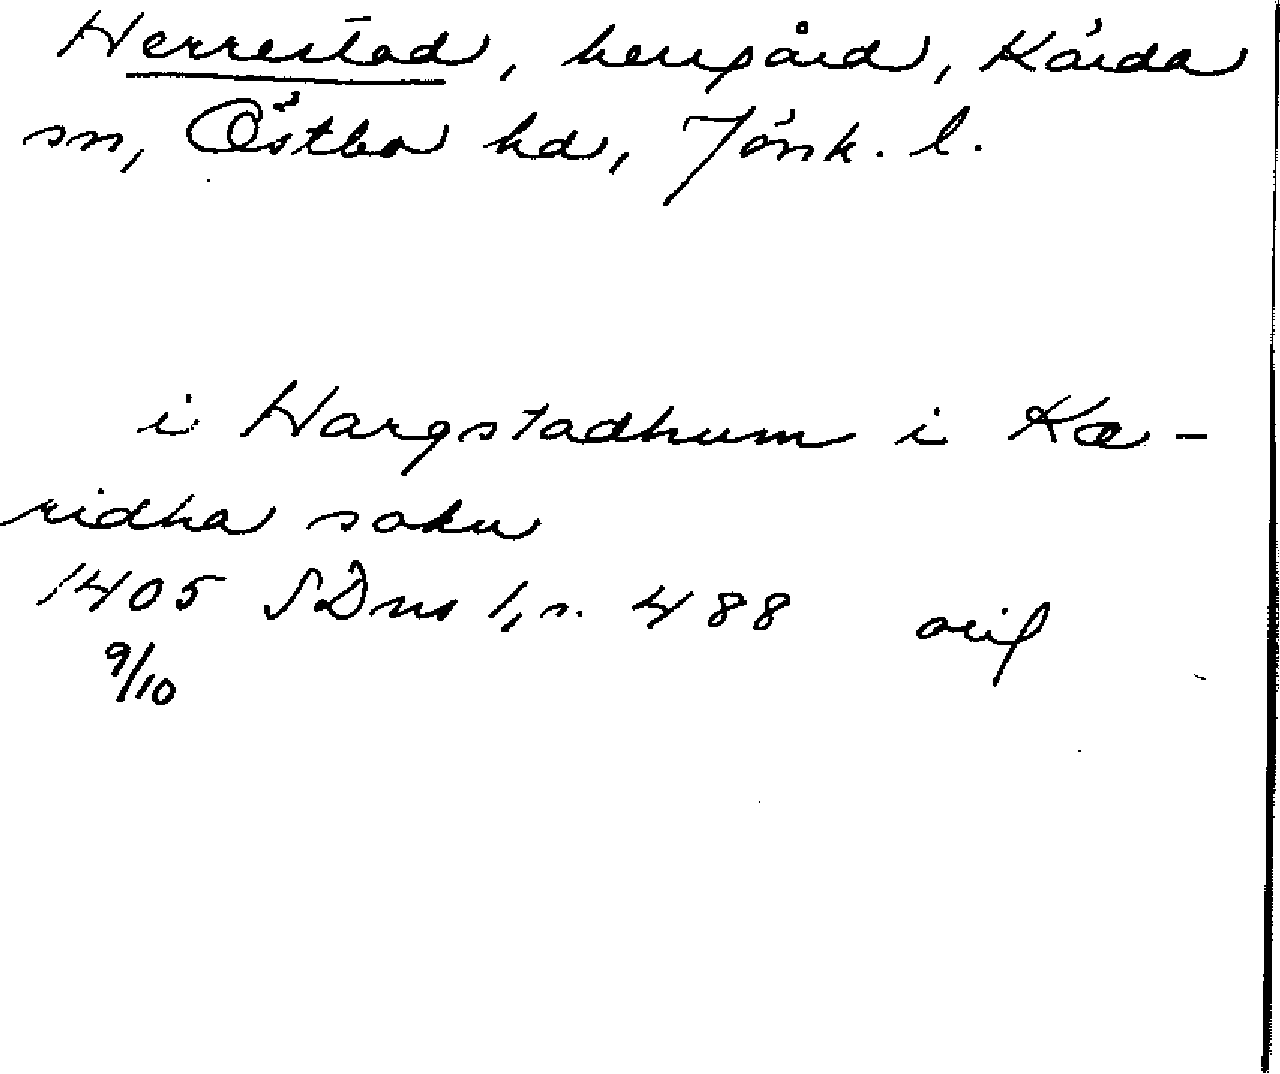 Herrestad, herrgård, Kärda
sn, Östbo hd, Jönk. l.
i Hargstadhum i Kæ-
ridha sokn
1405 SDns 1, n. 488 orig
9/10